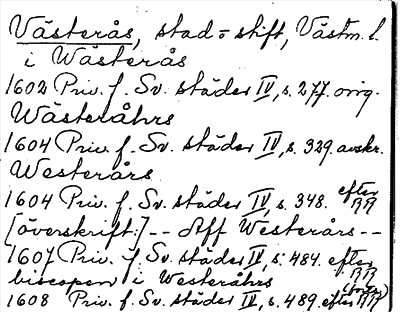 Västerås, stad = stift, Västm. l.
i Wästerås
1602 Priv. f. Sv. städer IV, s. 277. orig.
Wästeråhrs
1604 Priv. f. Sv. städer IV, s. 329. avskr.
Westerårs
1604 Priv. f. Sv. städer IV, s. 348. efter
[överskrift:] -- Aff Westerårs --
1607 Priv. f. Sv. städer IV, s. 484. efter
biscopen i Westeråhrs
1608 Priv. f. Sv. städer IV, s. 489. efter